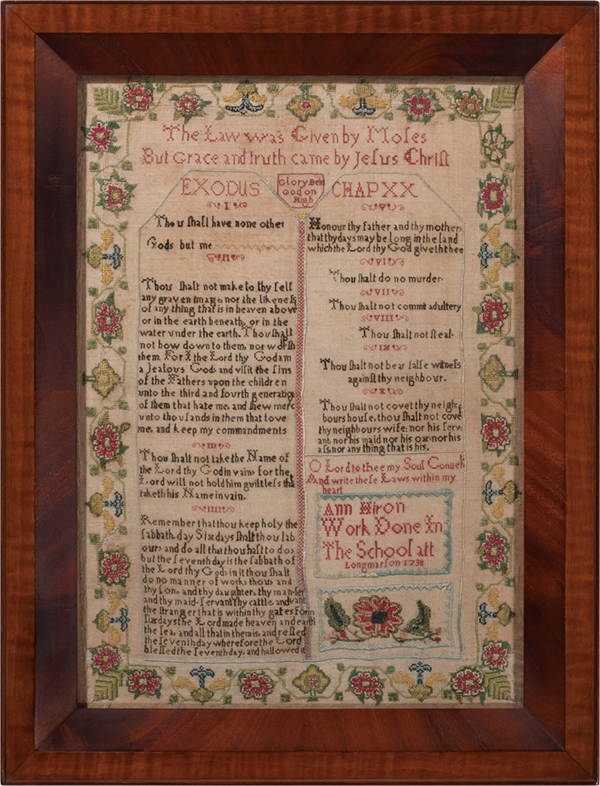 The Law was Given by Moſes
But Grace and truth came by Jeſus Chriſt
EXODUS
Glory Be to
God on
High
CHAP XX
I
Thou ſhall have none other
Gods but me
II
Thou ſhalt not make to thy ſelf
any graven Image nor the likeneſs
of any thing that is in heaven above
or in the earth beneath or in the
water under the earth. Thou ſhalt
not bow down to them nor woſhip
them. For I the Lord thy God am
a Jealous God and viſit the ſins
of the Fathers upon the children
unto the third and fourth generation
of them that hate me, and ſhew merc
unto thouſands in them that love
me, and keep my commandments
III
Thou ſhalt not take the Name of
the Lord thy God in vain: for the
Lord will not hold him guiltleſs tha
taketh his Name in vain.
IIII
Remember that thou keep holy the
ſabbath day Six days ſhalt thou lab
our and do all that thou haſt to do
but the ſeventh day is the ſabbath of
the Lord thy God in it thou ſhalt
do no manner of work thou and
thy ſon and thy daughter thy man ſer
and thy maid ſervant thy cattle and
the ſtranger that is within thy gates For in
ſix days the Lord made heaven and earth
the ſea and all that in them is and reſted
the ſeventh day wherefore the Lord
bleſſed the ſeventh day, and hallowed it
V
Honour thy father and thy mother
that thy days may be long in the land
which the Lord thy God giveth thee
VI
Thou ſhalt do no murder
VII
Thou ſhalt not commit adultery
VIII
Thou ſhalt not ſteal
IX
Thou ſhalt not bear falſe witneſs
againſt thy neighbour.
X
Thou ſhalt not covet thy neigh
bours houſe, thou ſhalt not cove
thy neighbours wife nor his ſerv
ant nor his maid nor his ox nor his
aſs nor any thing that is his.
O Lord to thee my Soul
And write theſe Laws within my
heart
Ann Hiron
Work Done In
The School att
Longmarſon 1738